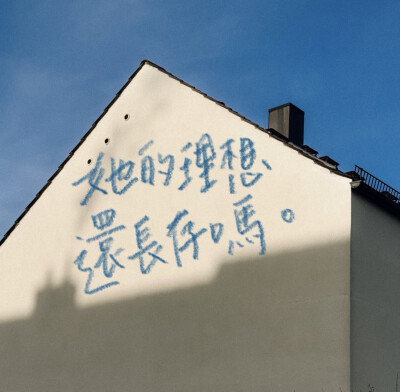 她的理想
還長存嗎。